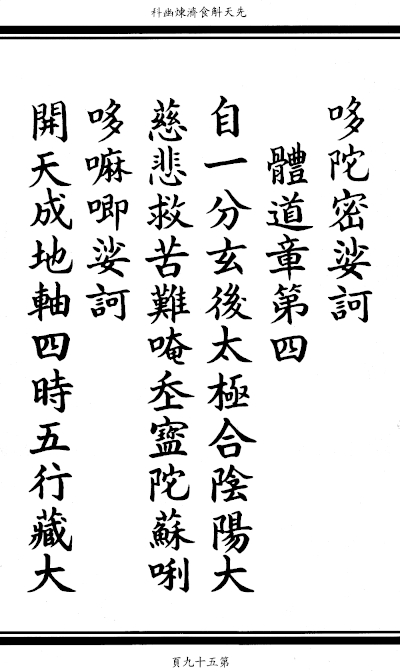 先天斛食濟煉幽科
哆陀密娑訶
體道章第四
自一分玄後太極合陰陽大
慈悲救苦難唵坙寍陀蘇唎
哆嘛唧娑訶
開天成地軸四時五行藏大
第五十九頁